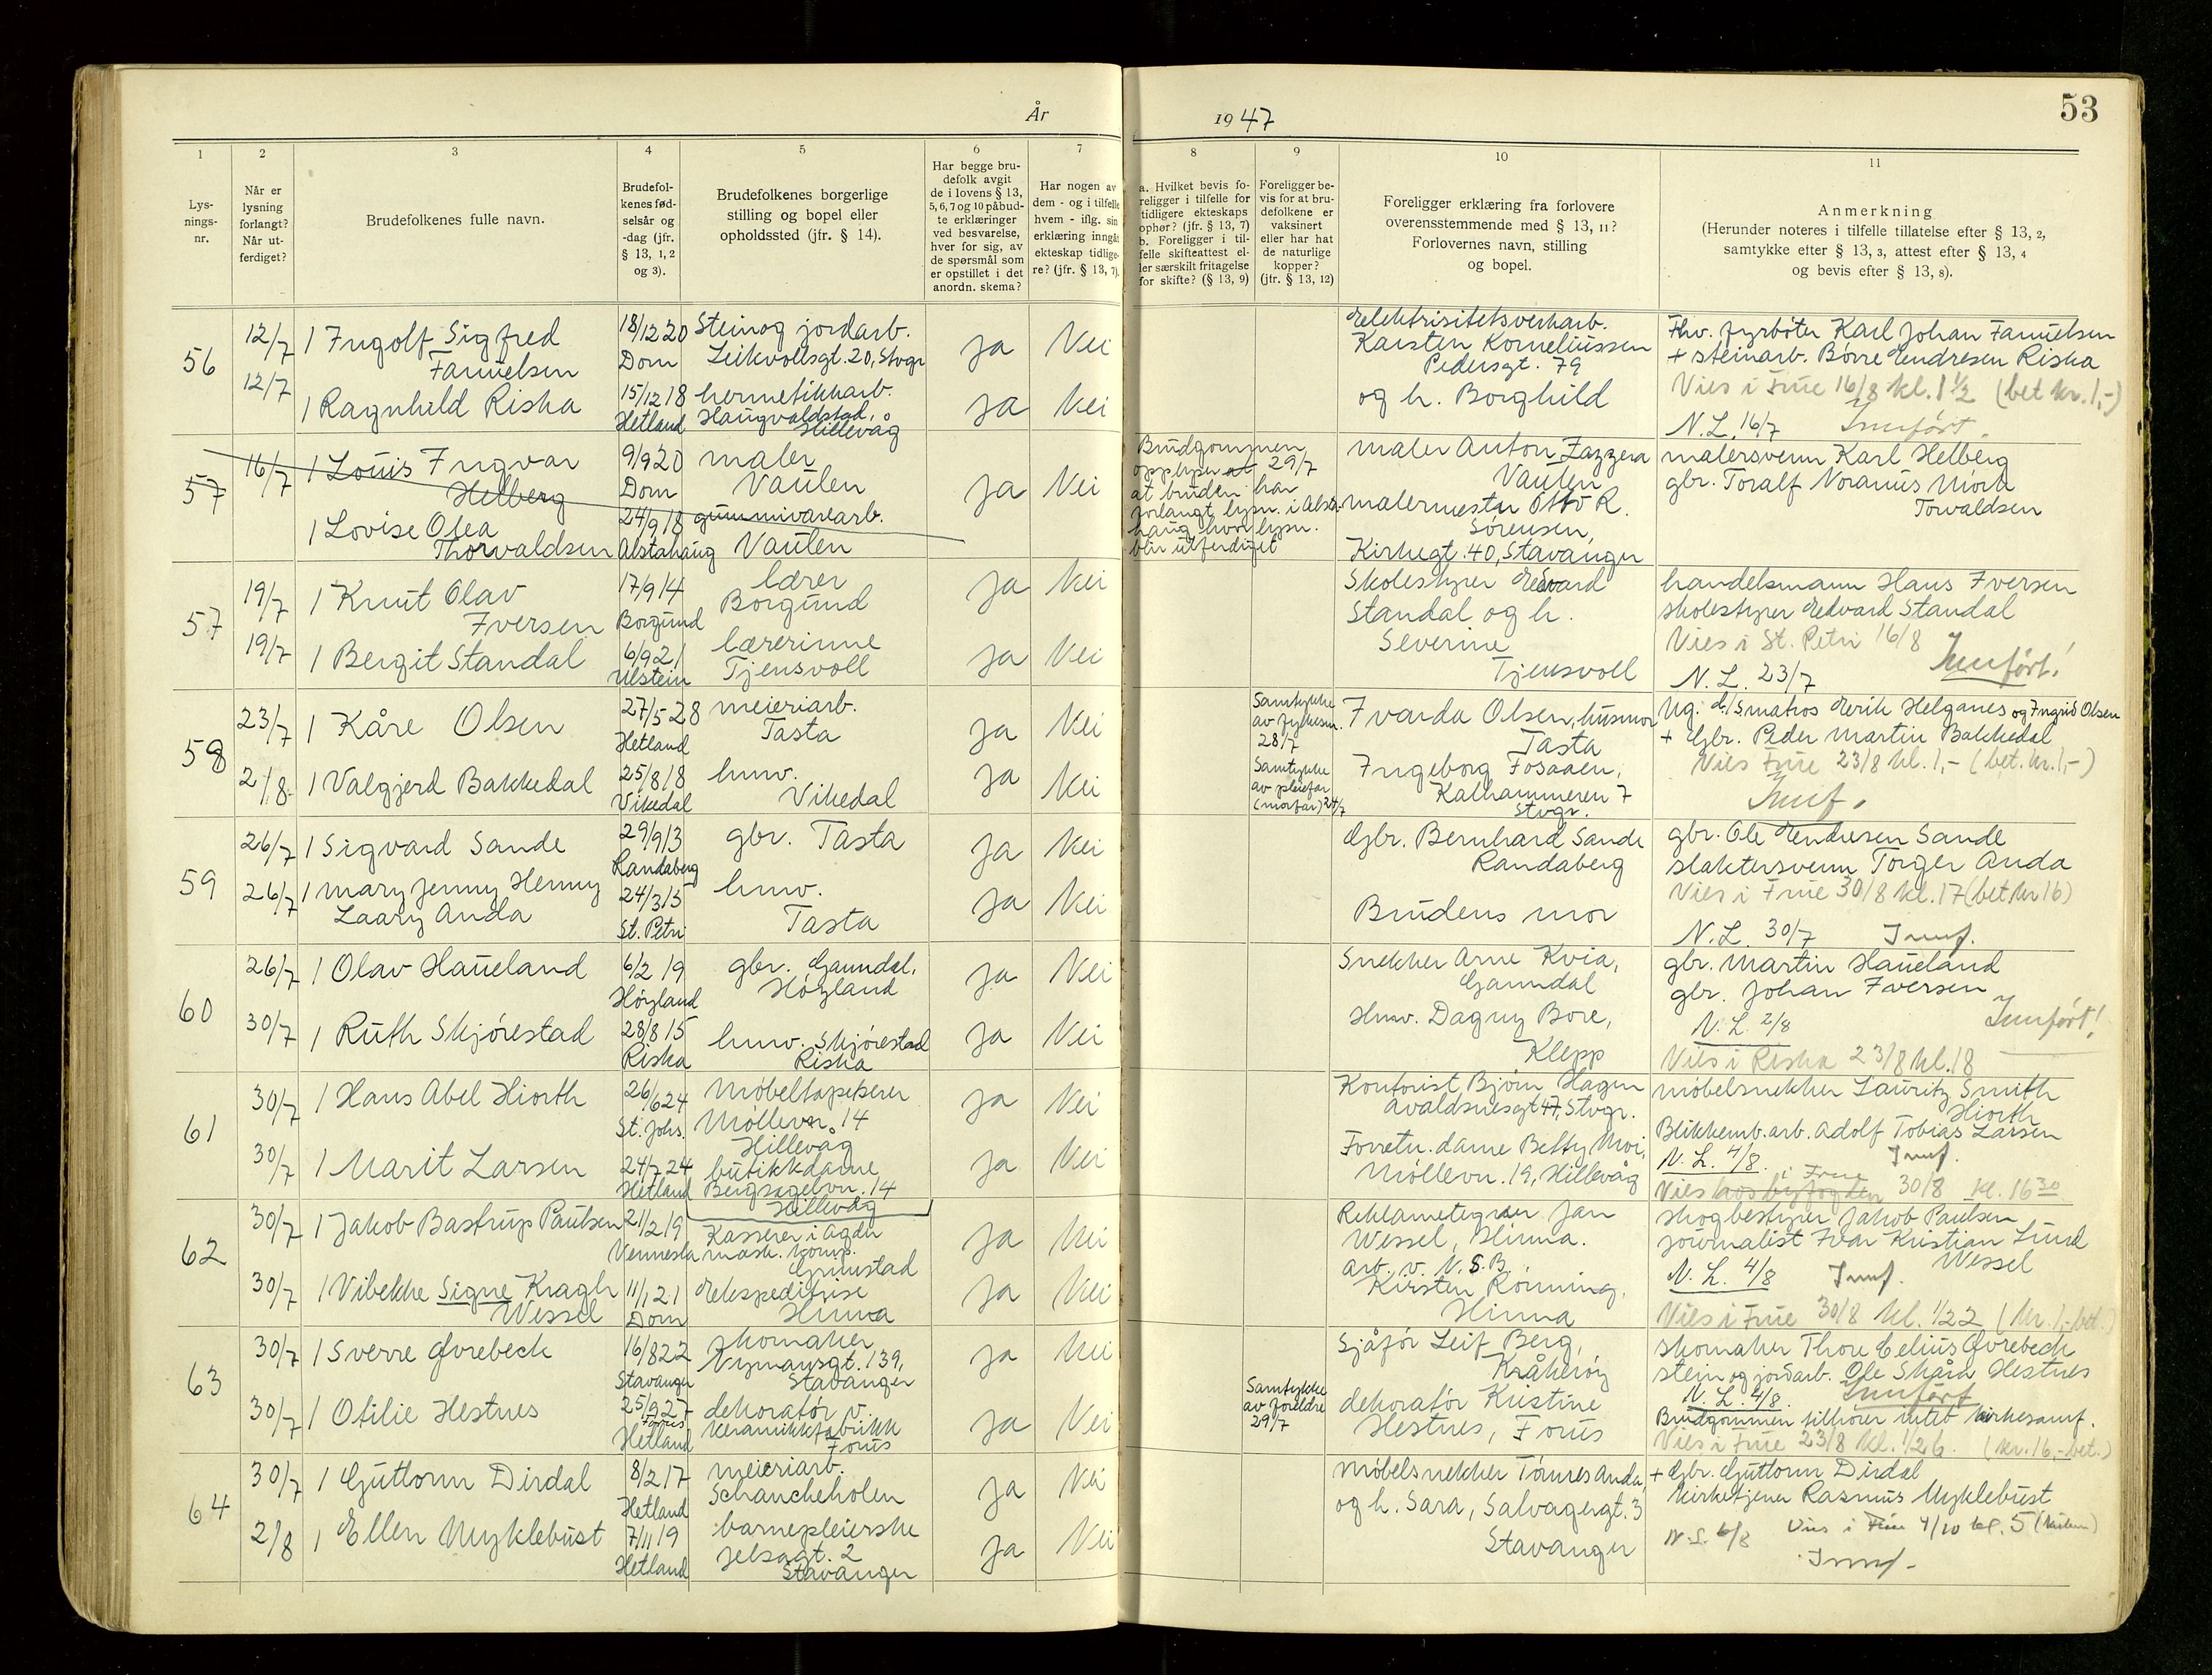 År 1947
53
1
2
3
4
5
6
7
8
9
10
11
Lysningsnr.
Når er lysning forlangt? Når utferdiget?
Brudefolkenes fulle navn.
Brudefolkenes fødselsår og -dag (jfr. § 13, 1, 2 og 3).
Brudefolkenes borgerlige stilling og bopel eller opholdssted (jfr. § 14).
Har begge brudefolk avgit de i lovens § 13, 5, 6, 7 og 10 påbudte erklæringer ved besvarelse, hver for sig, av de spørsmål som er opstillet i det anordn. skema?
Har nogen av dem - og i tilfelle hvem - iflg. sin erklæring inngåt ekteskap tidligere? (jfr. § 13, 7).
a. Hvilket bevis foreligger i tilfelle for tidligere ekteskaps ophør? (jfr. § 13, 7)
b. Foreligger i tilfelle skifteattest eller særskilt fritagelse for skifte? (§ 13, 9)
Foreligger bevis for at brudefolkene er vaksinert eller har hat de naturlige kopper? (jfr. § 13, 12)
Foreligger erklæring fra forlovere overensstemmende med § 13, 11? Forlovernes navn, stilling og bopel.
Anmerkning
(Herunder noteres i tilfelle tillatelse efter § 13, 2, samtykke efter § 13, 3, attest efter § 13, 4 og bevis efter § 13, 8).
56
12/7
1 Ingolf Sigfred
Fanuelsen
18/12 20
Dom
Stein og jordarb.
Leikvollsgt. 20, Stvgr
Ja
Nei
Elektrisitetsverkarb.
Karsten Korneliussen
Pedersgt. 79
Fhv. fyrbøter Karl Johan Fanuelsen
+ steinarb. Børre Endresen Riska
12/7
1 Ragnhild Riska
15/12 18
Hetland
hermetikkarb.
Haugvaldstad,
Hillevåg
Ja
Nei
og h. Borghild
Vies i Frue 16/8 kl. 1 1/2 (bet kr. 1,-)
N.L. 16/7 Innført.
57
16/7
1 Louis Ingvar
Helberg
9/9 20
Dom
maler
Vaulen
Ja
Nei
Brudgommen
opplyser at 29/7
at bruden har
forlangt lysn. i Alsta-
haug hvor lysn.
blir utferdiget
maler Anton Zazzera
Vaulen
malersvenn Karl Helberg
gbr. Toralf Noranus Mork
Torvaldsen
1 Lovise Olea
Thorvaldsen
24/9 18
Alstahaug
gummivarearb.
Vaulen
malermester Otto R.
Sørensen,
Kirkegt. 40, Stavanger
57
19/7
1 Knut Olav
Iversen
17/9 14
Borgund
lærer
Borgund
Ja
Nei
Skolestyrer Edvard
Standal og h.
Severine
Tjensvoll
handelsmann Hans Iversen
skolestyrer Edvard Standal
19/7
1 Bergit Standal
6/9 21
Ulstein
lærerinne
Tjensvoll
Ja
Nei
Vies i St. Petri 16/8
Innført!
N.L. 23/7
58
23/7
1 Kåre Olsen
27/5 28
Hetland
meieriarb.
Tasta
Ja
Nei
Samtykke
av fylkesm.
28/7
Ivarda Olsen, husmor
Tasta
Ug. d/s matros Erik Helganes og Ingrid Olsen
+ Gbr. Peder Martin Bakkedal
2/8
1 Valgjerd Bakkedal
25/8 18
Vikedal
hmv.
Vikedal
Ja
Nei
Samtykke
av pleiefar
(morfar) 24/7
Ingeborg Fosaaen,
Kalhammeren 7
Stvgr.
Vies Frue 23/8 kl. 1,- (bet. kr. 1,-)
Innf.
59
26/7
1 Sigvard Sande
29/9 13
Randaberg
gbr. Tasta
Ja
Nei
Gbr. Bernhard Sande
Randaberg
gbr. Ole Endresen Sande
slaktersvenn Torger Anda
26/7
1 Mary Jenny Henny
Laary Anda
24/3 15
St. Petri
hmv.
Tasta
Ja
Nei
Brudens mor
Vies i Frue 30/8 kl. 17 (bet. kr 16)
N.L. 30/7 Innf.
60
26/7
1 Olav Haueland
6/2 19
Høyland
gbr. Ganndal,
Høyland
Ja
Nei
Snekker Arne Kvia,
Ganndal
gbr. Martin Haueland
gbr. Johan Iversen
30/7
1 Ruth Skjørestad
28/8 15
Riska
hmv. Skjørestad
Riska
Ja
Nei
Hmv. Dagny Bore,
Klepp
N.L. 2/8 Innført!
Vies i Riska 23/8 kl. 18
61
30/7
1 Hans Abel Hiorth
26/6 24
St. Johs.
Møbeltapetserer
Møllevn. 14
Hillevåg
Ja
Nei
Kontorist Bjørn Hagen
Avaldsnesgt 47, Stvgr.
møbelsnekker Lauritz Smith
Hiorth
Blikkemb. arb. Adolf Tobias Larsen
30/7
1 Marit Larsen
24/7 24
Hetland
butikkdame
Bergsagelvn. 14
Hillevåg
Ja
Nei
Forretn. dame Betty Moi,
Møllevn. 19, Hillevåg
N.L. 4/8. Innf.
Vies hos byfogden i Frue 30/8 kl. 16 30
62
30/7
1 Jakob Bastrup Paulsen
21/2 19
Vennesla
Kasserer i Agder
mask. komp.
Grimstad
Ja
Nei
Reklametegner Jan
Wessel, Hinna.
arb. v. N.S.B.
skogbestyrer Jakob Paulsen
journalist Ivar Kristian Lund
Wessel
30/7
1 Vibekke Signe Kragh
Wessel
11/1 21
Dom
ekspeditrise
Hinna
Ja
Nei
Kirsten Rønning,
Hinna
N.L. 4/8 Innf.
Vies i Frue 30/8 kl. 1/2 2 (kr. 1,- bet.)
63
30/7
1 Sverre Øvrebeck
16/8 22
Stavanger
skomaker
Nymansgt. 139,
Stavanger
Ja
Nei
Sjåfør Leif Berg,
Kråkerøy
skomaker Thore Celius Øvrebeck
stein og jordarb. Ole Skåra Hestnes
30/7
1 Otilie Hestnes
25/9 27
Forus
Hetland
dekoratør v.
keramikkfabrikk
Forus
Ja
Nei
Samtykke
av foreldre
29/7
dekoratør Kristine
Hestnes, Forus
N.L. 4/8. Innført
Brudgommen tilhører intet kirkesamf.
Vies i Frue 23/8 kl. 1/2 6. (kr. 16,- bet.)
64
30/7
1 Guttorm Dirdal
8/2 17
Hetland
meieriarb.
Schancheholen
Ja
Nei
Møbelsnekker Tønnes Anda,
og h. Sara, Salvagergt. 3
Stavanger
+ Gbr. Guttorm Dirdal
kirketjener Rasmus Myklebust
2/8
1 Ellen Myklebust
7/11 19
Hetland
barnepleierske
Jelsagt. 2
Stavanger
Ja
Nei
N.L. 6/8 Vies i Frue 4/10 kl. 5
Innf.